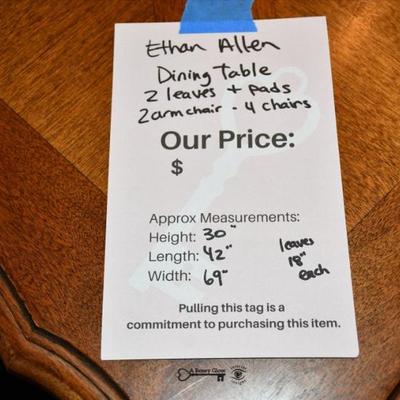 Ethan Allen
Dining Table
2 leaves + pads
2 armchair - 4 chairs
Our Price:
$
Approx Measurements:
Height: 30"
Length: 42"
Width: 69"
leaves
18"
each
Pulling this tag is a
commitment to purchasing this item.